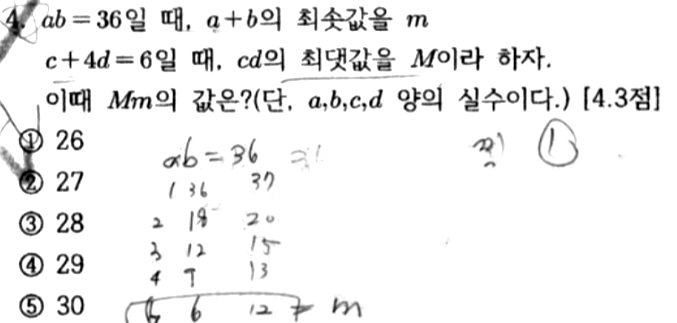 4. ab=36일 때, a+b의 최솟값을 m
c+4d=6일 때, cd의 최댓값을 M이라 하자.
이때 Mm의 값은?(단, a,b,c,d 양의 실수이다.) [4.3점]
① 26
② 27
③ 28
④ 29
⑤ 30
ab=36
①
1 36 37
2 18 20
3 12 15
4 9 13
6 12 = m